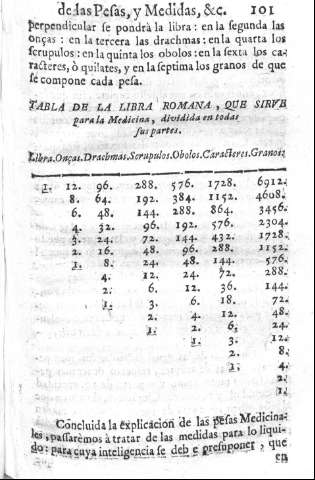 de las Pesas, y Medidas, &c. 101
perpendicular se pondrà la libra: en la segunda las
onças: en la tercera las drachmas: en la quarta los
scrupulos: en la quinta los obolos: en la sexta los ca-
racteres, ò quilates, y en la septima los granos de que
se compone cada pesa.
TABLA DE LA LIBRA ROMANA, QUE SIRVE
para la Medicina, dividida en todas
sus partes.
Libra. Onças. Drachmas. Scrupulos. Obolos. Caracteres. Granos
1. 12. 96. 288. 576. 1728. 6912.
8. 64. 192. 384. 1152. 4608.
6. 48. 144. 288. 864. 3456.
4. 32. 96. 192. 576. 2304.
3. 24. 72. 144. 432. 1728.
2. 16. 48. 96. 288. 1152.
1. 8. 24. 48. 144. 576.
4. 12. 24. 72. 288.
2. 6. 12. 36. 144.
1. 3. 6. 18. 72.
2. 4. 12. 48.
1. 2. 6. 24.
1. 3. 12.
2. 8.
1. 4.
2.
1.
Concluida la explicacion de las pesas Medicina-
les, passarèmos à tratar de las medidas para lo liqui-
do: para cuya inteligencia se deb e presuponer, que
en